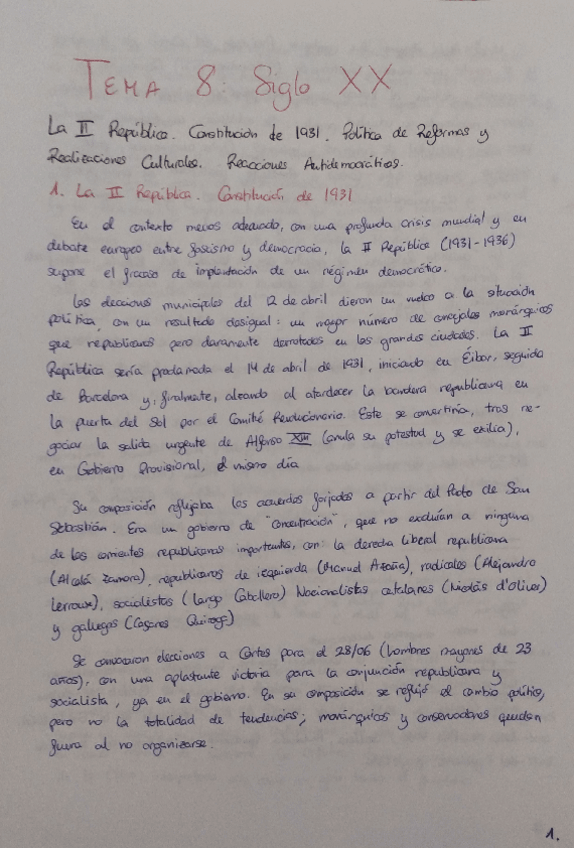 TEMA 8: Siglo XX
La II República. Constitución de 1931. Política de Reformas y
Realizaciones Culturales. Reacciones Antidemocráticas.
1. La II República. Constitución de 1931
En el contexto menos adecuado, con una profunda crisis mundial y en
debate europeo entre fascismo y democracia, la II República (1931-1936)
supone el fracaso de implantación de un régimen democrático.
Las elecciones municipales del 12 de abril dieron un vuelco a la situación
política, con un resultado desigual: un mayor número de concejales monárquicos
que republicanos pero claramente derrotados en las grandes ciudades. La II
República sería proclamada el 14 de abril de 1931, iniciando en Éibar, seguida
de Barcelona y, finalmente, alzando al atardecer la bandera republicana en
la puerta del Sol por el Comité Revolucionario. Este se convertiría, tras ne-
gociar la salida urgente de Alfonso XIII (anula su potestad y se exilia),
en Gobierno Provisional, el mismo día
Su composición reflejaba los acuerdos forjados a partir del Pacto de San
Sebastián. Era un gobierno de "concentración", que no excluían a ninguna
de las corrientes republicanas importantes, con: la derecha liberal republicana
(Alcalá Zamora), republicanos de izquierda (Manuel Azaña), radicales (Alejandro
Lerroux), socialistas (Largo Caballero) Nacionalistas catalanes (Nicolás d'Olwer)
y gallegos (Casares Quiroga)
Se convocaron elecciones a Cortes para el 28/06 (hombres mayores de 23
años), con una aplastante victoria para la conjunción republicana y
socialista, ya en el gobierno. En su composición se reflejó el cambio político,
pero no la totalidad de tendencias; monárquicos y conservadores quedan
fuera al no organizarse.
1.